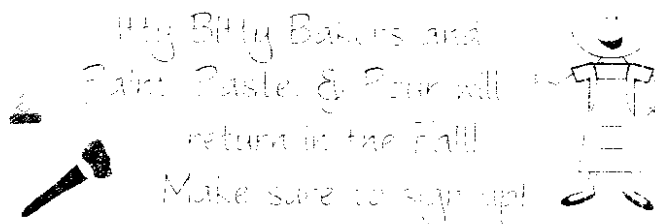 Itty Bitty Bakers and
Paint, Paste, & Pour will
return in the Fall!
Make sure to sign up!